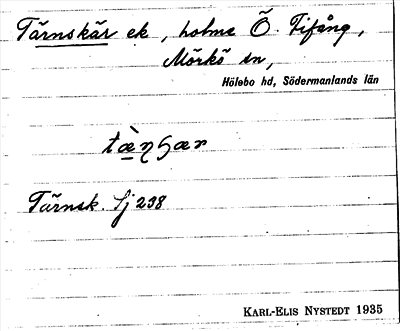 Tärnskär ek, holme Ö. Tifång,
Mörkö sn,
Hölebo hd, Södermanlands län
Tärnsk. Sj 238
KARL-ELIS NYSTEDT 1935